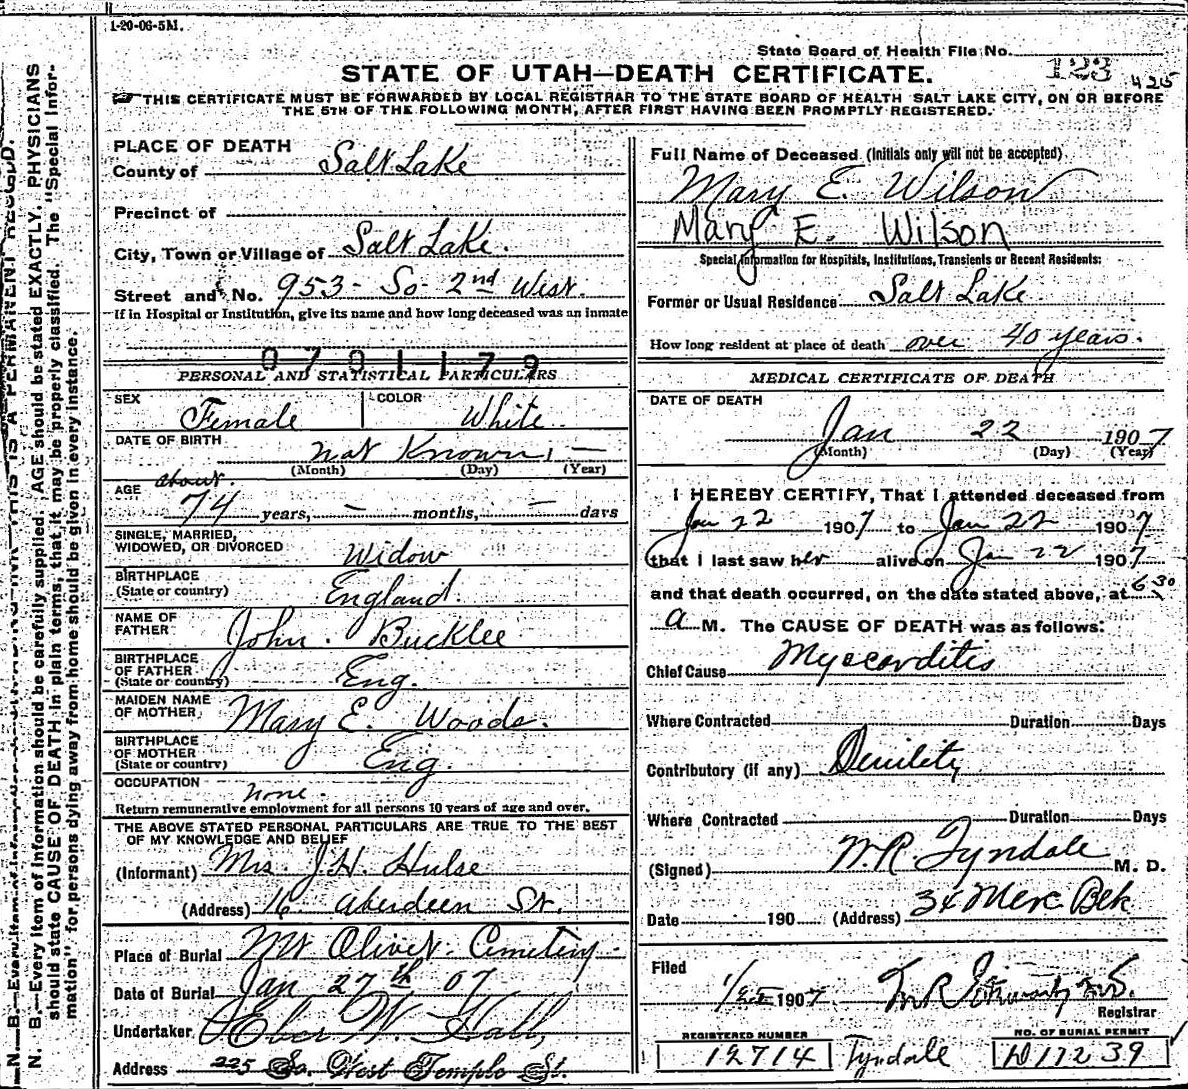 1-20-06-5M.
State Board of Health File No. 123 425
STATE OF UTAH—DEATH CERTIFICATE.
THIS CERTIFICATE MUST BE FORWARDED BY LOCAL REGISTRAR TO THE STATE BOARD OF HEALTH SALT LAKE CITY, ON OR BEFORE
THE 5TH OF THE FOLLOWING MONTH, AFTER FIRST HAVING BEEN PROMPTLY REGISTERED.
N. B.—Every item of information should be carefully supplied. AGE should be stated EXACTLY. PHYSICIANS
should state CAUSE OF DEATH in plain terms, that it may be properly classified. The "Special Infor-
mation" for persons dying away from home should be given in every instance.
THIS IS A PERMANENT RECORD.
PLACE OF DEATH
County of Salt Lake
Precinct of
City, Town or Village of Salt Lake.
Street and No. 953- So- 2nd West.
If in Hospital or Institution, give its name and how long deceased was an inmate
0701179
PERSONAL AND STATISTICAL PARTICULARS
SEX Female COLOR White
DATE OF BIRTH Not Known, —
(Month) (Day) (Year)
AGE about.
74 years, — months, — days
SINGLE, MARRIED,
WIDOWED, OR DIVORCED Widow
BIRTHPLACE
(State or country) England.
NAME OF
FATHER John. Bucklee
BIRTHPLACE
OF FATHER
(State or country) Eng.
MAIDEN NAME
OF MOTHER Mary E. Woods.
BIRTHPLACE
OF MOTHER
(State or country) Eng.
OCCUPATION none.
Return remunerative employment for all persons 10 years of age and over.
THE ABOVE STATED PERSONAL PARTICULARS ARE TRUE TO THE BEST
OF MY KNOWLEDGE AND BELIEF
(Informant) Mrs. J.H. Hulse
(Address) 16 Aberdeen St.
Place of Burial Mt Olivet Cemetery
Date of Burial Jan 27th 07
Undertaker Eber W. Hall,
Address 225 So. West Temple St.
Full Name of Deceased (Initials only will not be accepted)
Mary E. Wilson
Mary E. Wilson
Special Information for Hospitals, Institutions, Transients or Recent Residents:
Former or Usual Residence Salt Lake
How long resident at place of death over 40 years.
MEDICAL CERTIFICATE OF DEATH
DATE OF DEATH
Jan 22 1907
(Month) (Day) (Year)
I HEREBY CERTIFY, That I attended deceased from
Jan 22 1907 to Jan 22 1907
that I last saw her alive on Jan 22 1907
and that death occurred, on the date stated above, at 6 30
a M. The CAUSE OF DEATH was as follows:
Chief Cause Myocarditis
Where Contracted Duration Days
Contributory (if any) Senility
Where Contracted Duration Days
(Signed) W.R. Tyndale M. D.
Date 190 (Address) 34 Merc Blk
Filed 1907
Registrar
REGISTERED NUMBER NO. OF BURIAL PERMIT
12714 Tyndale D17239